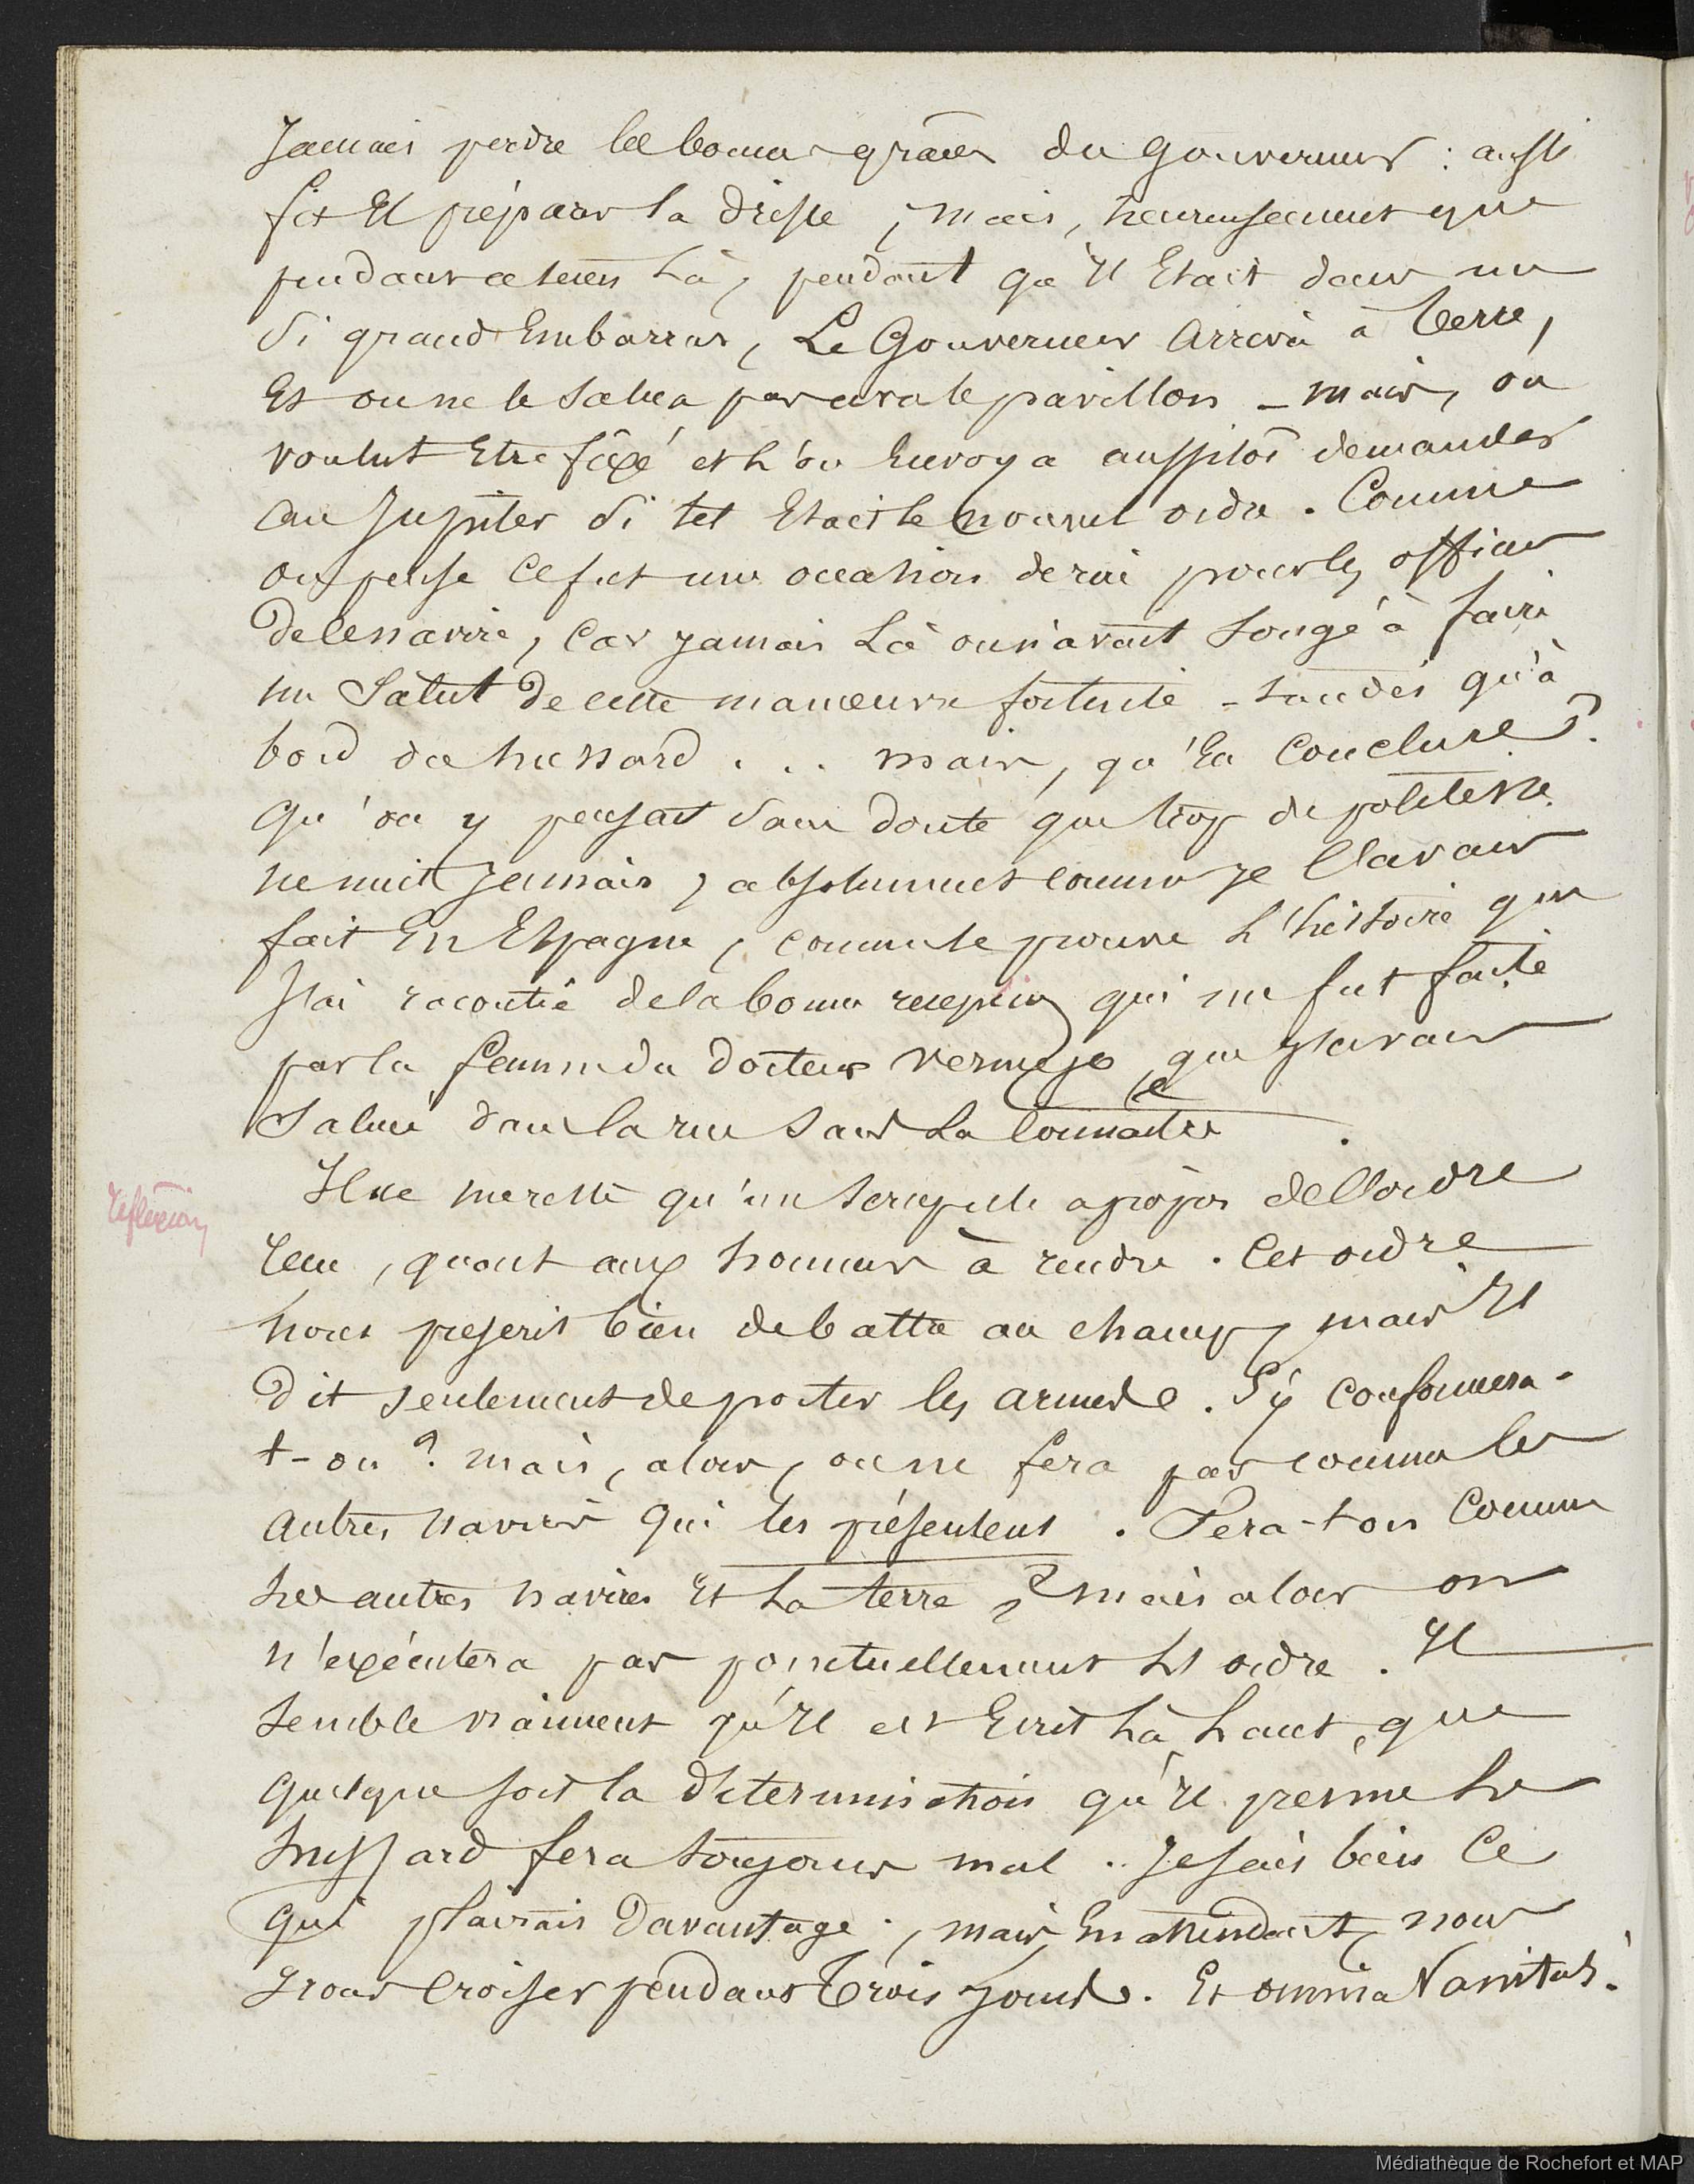 Jamais perdre les bonnes grâces du Gouverneur : aussi
fit Il préparer la drisse, mais, heureusement que
pendant ce tems là, pendant qu'Il Etait dans un
Si grand Embarras, Le Gouverneur Arriva à terre,
Et on ne le salua pas avec le pavillon - mais, on
voulut Etre fixé et l'on Envoya aussitôt demander
au Jupiter Si tel Etait le nouvel ordre. Comme
on pense Ce fut une occasion de rire pour les officiers
de ce navire, Car jamais Là on n'avait Songé à faire
un Salut de cette manoeuvre fortuite - tandis qu'à
bord du hussard ... mais, qu'En Conclure ?
Qu'on y pensait Sans doute que trop de politesse
ne nuit Jamais, absolument comme je l'avais
fait En Espagne, comme le prouve l'histoire que
J'ai racontée de la bonne reception qui me fut faite
par la femme du docteur vermejo, que j'avais
Saluée dans la rue Sans La Connaitre.
Réflexion
Il ne me reste qu'un scrupule à propos de l'ordre
reçu, quant aux honneurs à rendre. Cet ordre
nous prescrit bien de battre au champ, mais Il
Dit seulement de porter les armes. S'y Conformera-
t-on ? mais, alors, on ne fera pas comme les
autres navires Qui les présentent. Fera-t-on Comme
Les autres navires Et La terre ? mais alors on
n'exécutera pas ponctuellement L'ordre. Il
Semble vraiment qu'Il est Ecrit Là haut, que
quelque soit la détermination qu'Il prenne Le
hussard fera toujours mal. Je sais bien Ce
qui plairait Davantage ; mais, En attendant, nous
Irons Croiser pendant Trois jours. Et omnia Vanitas.
Médiathèque de Rochefort et MAP